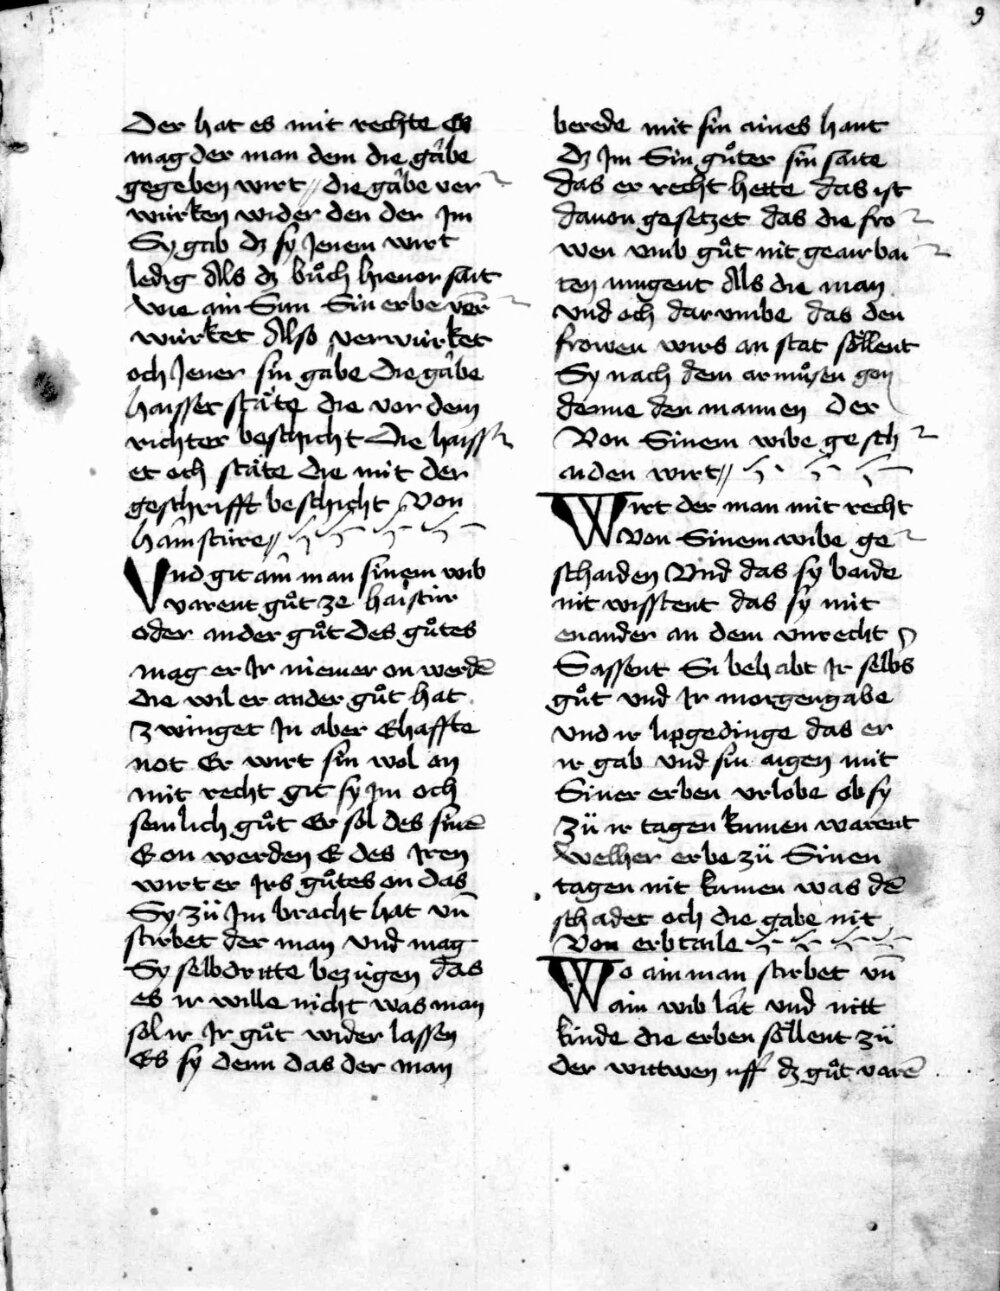 9
Der hat es mit rechte Es
mag der man dem die gâbe
gegeben wirt // die gâbe ver
würken wider den der Jm
Sy gab dz sy Jenem wirt
ledig Als dz bůch hieuor sait
wie ain Sun Sin erbe ver
würket Also verwürket
och Jener sin gâbe Die gâbe
haisset stäte die vor dem
richter beschicht Die haiss
et och stäte die mit der
geschrifft beschicht Von
hâmstüre //
Vnd git ain man sinem wib
varent gůt ze haistür
oder ander gůt Des gůtes
mag er Jr niemer on werdē
die wil er ander gůt hat
zwinget Jn aber Ehaffte
not Er wirt sin wol on
mit recht git sy Jm och
semlich gůt Er sol des sinē
E on werden E des Jren
wirt er Jrs gůtes on das
Sy zü Jm bracht hat vn̄
stirbet der man vnd mag
Sy selbdritte bezügen das
es ir wille nicht was man
sol ir Jr gůt wider lassen
Es sy denn das der man
berede mit sin aines hant
dz Jm Sin gůter sin saite
das er recht hette das ist
dauon gesetzet das die fro
wen vmb gůt nit geairbai
ten mugent Als die man
vnd och darvmbe das den
frowen wirs an stat söllent
Sy nach dem armůsen gon
denne den mannen Der
Von Sinem wibe gesch
aiden wirt //
Wirt der man mit recht
Von Sinem wibe ge
schaiden Vnd das sy baide
nit wisstent das sy mit
enander an dem vnrecht
Sassent Si behabt Jr selbs
gůt vnd Jr morgengabe
vnd ir lipgedinge das er
ir gab vnd sin aigen mit
Siner erben vrlobe ob sy
zü ir tagen kumen warent
welher erbe zü Sinen
tagen nit kumen was dē
schadet och die gabe nit
Von erbtaile
Wo ain man stirbet vn̄
ain wib lât vnd nitt
kinde die erben söllent zü
der wittwen uff dz gůt varē